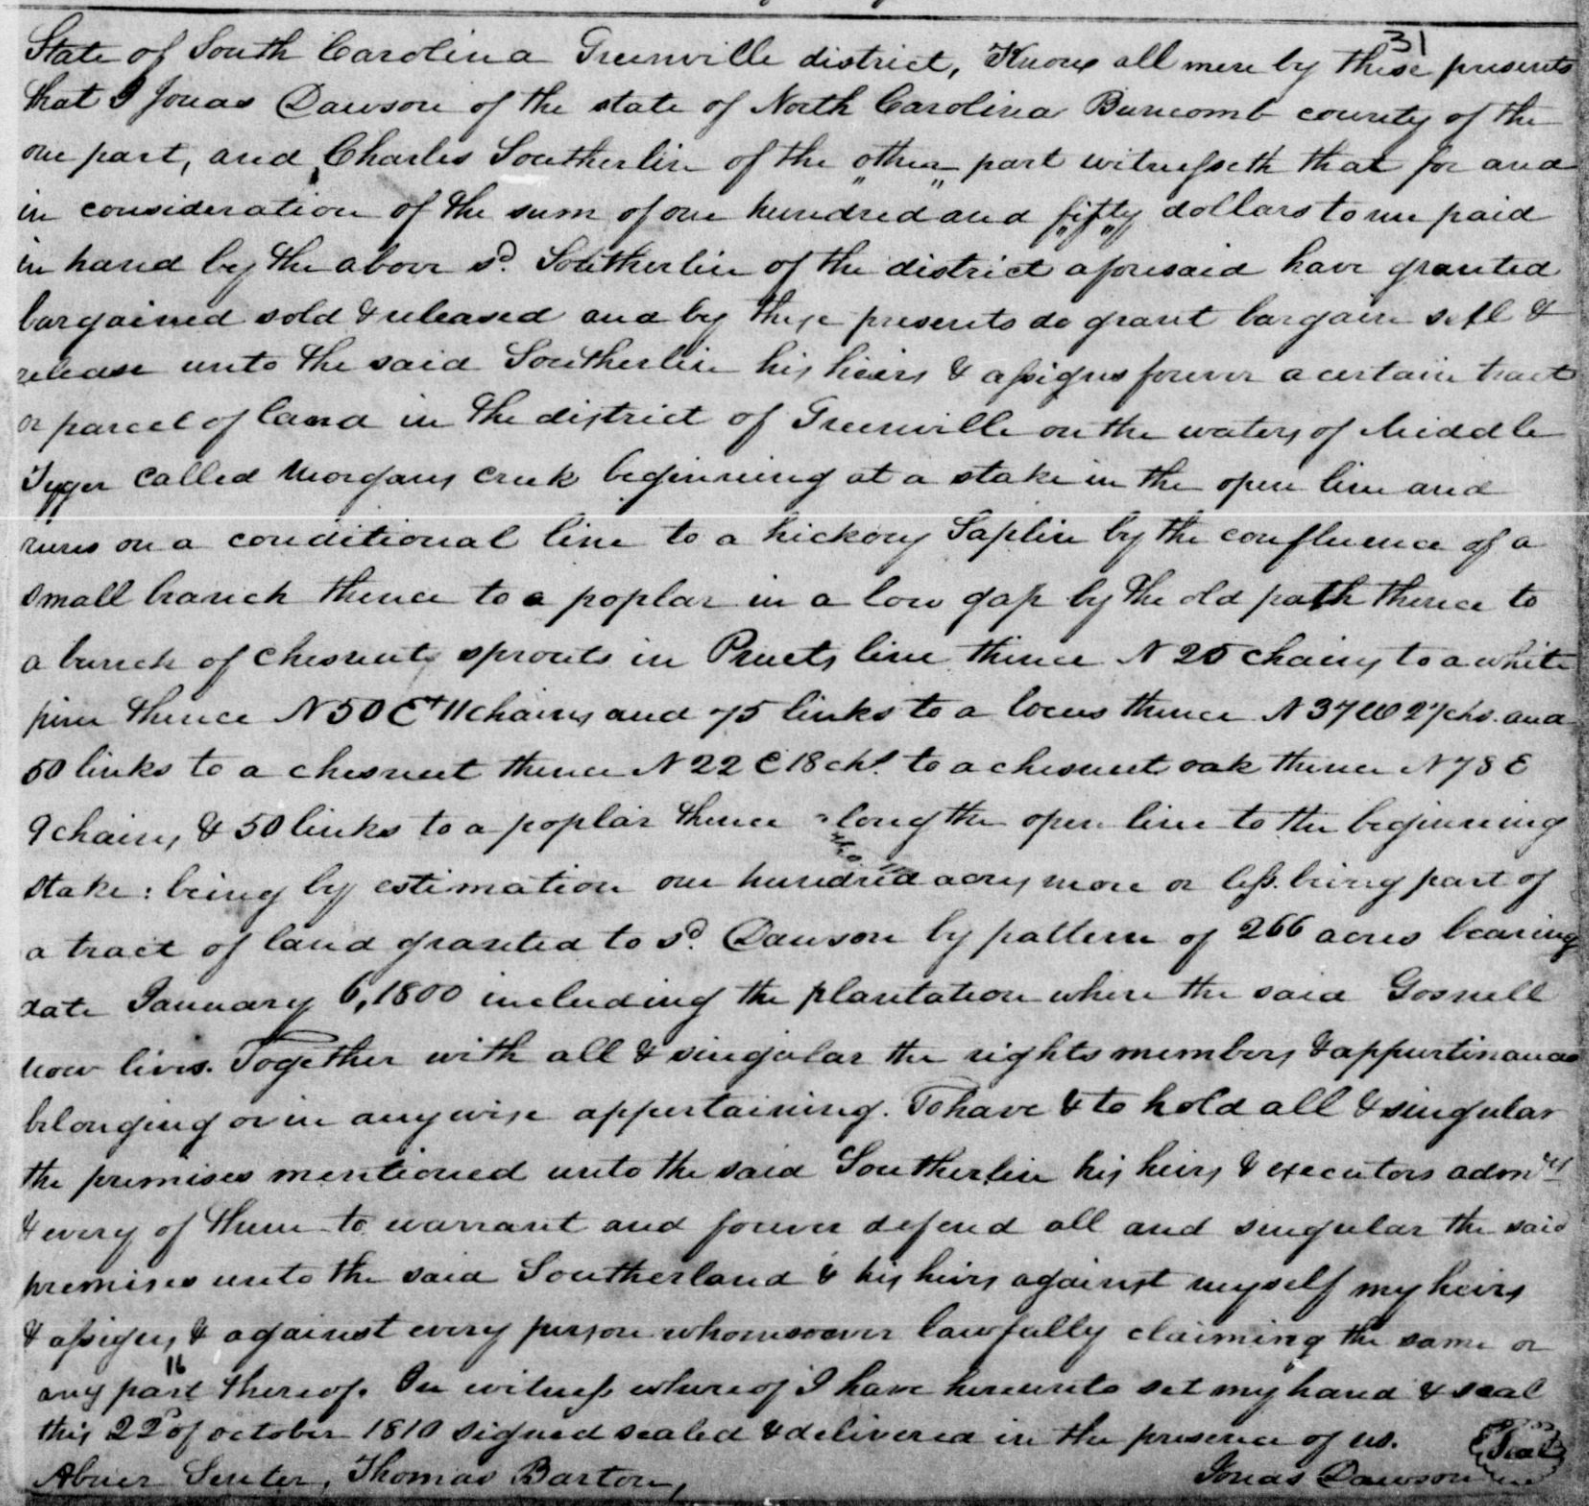 31
State of South Carolina Greenville district, Know all men by these presents
that I Jonas Dawson of the state of North Carolina Buncomb county of the
one part, and Charles Southerlin of the "other" part witnesseth that for and
in consideration of the sum of one hundred and fifty dollars to me paid
in hand by the above sd. Southerlin of the district aforesaid have granted
bargained sold & released and by these presents do grant bargain sell &
release unto the said Southerlin his heirs & assigns forever a certain tract
or parcel of land in the district of Greenville on the waters of Middle
Tyger called Morgans creek beginning at a stake in the open line and
runs on a conditional line to a hickory Saplin by the confluence of a
small branch thence to a poplar in a low gap by the old path thence to
a bunch of chesnut sprouts in Pruets line thence N 25 chains to a white
pine thence N 50 Et 11 chains and 75 links to a locus thence N 37 W 27 chs. and
50 links to a chesnut thence N 22 E 18 chs. to a chesnut oak thence N 78 E
9 chains & 50 links to a poplar thence along the open line to the beginning
stake: being by estimation one hundred acres more or less. being part of
a tract of land granted to sd. Dawson by pattern of 266 acres bearing
date January 6, 1800 including the plantation where the said Gosnell
now lives. Together with all & singular the rights members & appurtinances
belonging or in anywise appertaining. To have & to hold all & singular
the premises mentioned unto the said Southerlin his heirs & executors admrs
& every of them to warrant and forever defend all and singular the said
premises unto the said Southerland & his heirs against myself my heirs
& assigns & against every person whomsoever lawfully claiming the same or
16
any part thereof. In witness whereof I have hereunto set my hand & seal
this 22d of october 1810 signed sealed & delivered in the presence of us.
Abner Senter, Thomas Barton, Jonas Dawson Seal